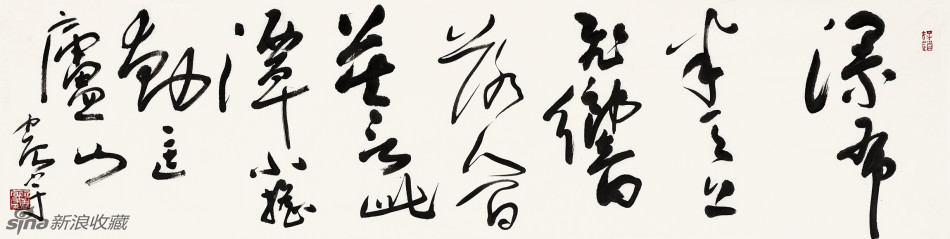 瀑布
半天上
飛響
落人間
莫言此
潭小搖
動匡
廬山
sina新浪收藏